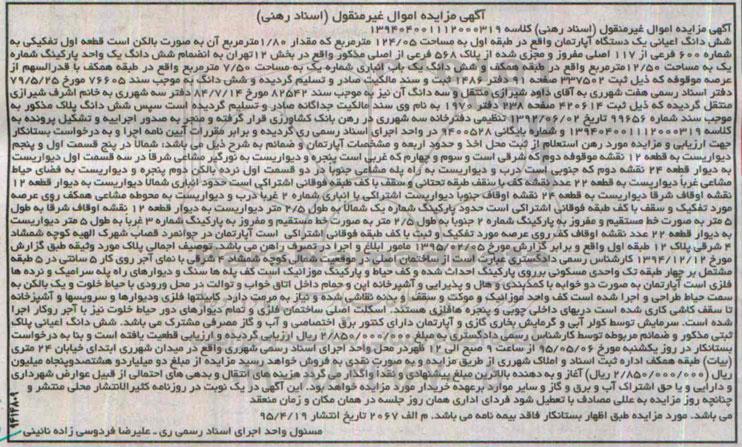 آگهی مزایده اموال غیرمنقول (اسناد رهنی)
آگهی مزایده اموال غیرمنقول (اسناد رهنی) کلاسه ۱۳۹۴۰۴۰۰۱۱۱۲۰۰۰۳۱۹
شش دانگ اعیانی یک دستگاه آپارتمان واقع در طبقه اول به مساحت ۱۲۴/۰۵ مترمربع که مقدار ۱/۸۰مترمربع آن به صورت بالکن است قطعه اول تفکیکی به
شماره ۶۰۰ فرعی از ۱۱۷ اصلی مفروز و مجزی شده از پلاک ۵۶۸ فرعی از اصلی مذکور واقع در بخش ۱۲تهران به انضمام شش دانگ یک واحد پارکینگ شماره
یک به مساحت ۱۲/۵۰مترمربع واقع در طبقه همکف و شش دانگ یک باب انباری شماره یک به مساحت ۷/۵۰ مترمربع واقع در طبقه همکف با قدرالسهم از
عرصه موقوفه که ذیل ثبت ۳۳۷۵۰۲ صفحه ۹۱ دفتر ۱۴۸۶ ثبت و سند مالکیت صادر و تسلیم گردیده و شش دانگ به موجب سند ۷۶۶۰۵ مورخ ۷۹/۵/۲۵
دفتر اسناد رسمی هفت شهرری به آقای داود شیرازی منتقل و سه دانگ آن نیز به موجب سند ۸۲۵۴۲ مورخ ۸۴/۷/۱۴ دفتر سه شهرری به خانم اشرف شیرازی
منتقل گردیده که ذیل ثبت ۴۲۰۶۱۴ صفحه ۲۳۸ دفتر ۱۹۷۰ به نام وی سند مالکیت جداگانه صادر و تسلیم گردیده است سپس شش دانگ پلاک مذکور به
موجب سند شماره ۹۹۶۵۶ مورخ ۱۳۹۲/۰۶/۰۲ تنظیمی دفترخانه سه شهرری در رهن بانک کشاورزی قرار گرفته و منجر به صدور اجراییه و تشکیل پرونده به
کلاسه ۱۳۹۴۰۴۰۰۱۱۱۲۰۰۰۳۱۹ و شماره بایگانی ۹۴۰۰۵۲۸ در واحد اجرای اسناد رسمی ری گردیده و برابر مقررات آیین نامه اجرا و به درخواست بستانکار
جهت ارزیابی و مزایده مورد رهن استعلام از ثبت محل اخذ و حدود اربعه و مشخصات آپارتمان و ضمائم به شرح ذیل می باشد: شمالاً در پنج قسمت اول و پنجم
دیواریست به قطعه ۱۲ نقشه موقوفه دوم که شرقی است و سوم و چهارم که غربی است پنجره و دیواریست به نورگیر مشاعی شرقاً در سه قسمت اول دیواریست
به دیوار قطعه ۲۴ نقشه دوم که جنوبی است درب و دیواریست به راه پله مشاعی جنوباً در دو قسمت اول نرده بالکن دوم پنجره و دیواریست به فضای حیاط
مشاعی غرباً دیواریست به قطعه ۲۲ عدد نقشه کف با سقف طبقه تحتانی و سقف با کف طبقه فوقانی اشتراکی است حدود انباری شمالاً دیواریست به دیوار قطعه ۱۲
اوقاف شرقاً دیواریست به قطعه ۲۴ نقشه اوقاف جنوباً دیواریست اشتراکی با انباری شماره ۲ غرباً درب و دیواریست به محوطه مشاعی همکف روی عرصه
مورد تفکیک و سقف با کف طبقه فوقانی اشتراکی است حدود پارکینگ شماره یک شمالاً به طول ۲/۵ متر دیواریست به دیوار قطعه ۱۲ نقشه اوقاف شرقاً به طول
۵ متر به صورت خط مستقیم و مفروز به پارکینگ شماره ۲ جنوباً به طول ۲/۵ متر به صورت خط مستقیم و مفروز به پارکینگ شماره ۳ غرباً به طول ۵ متر دیواریست
به دیوار قطعه ۲۲ عدد نقشه اوقاف کف روی عرصه مورد تفکیک و ثبت با کف طبقه فوقانی اشتراکی است آپارتمان در جوانمرد قصاب شهرک الهیه کوچه شمشاد
۴ شرقی پلاک ۱۲ طبقه اول واقع و برابر گزارش مورخ ۱۳۹۵/۰۲/۰۵ مامور ابلاغ و اجرا در تصرف راهن می باشد. توصیف اجمالی پلاک مورد وثیقه طبق گزارش
مورخ ۱۳۹۴/۱۲/۱۲ کارشناس رسمی دادگستری عبارت است از ساختمان اصلی در موقعیت شمالی کوچه شمشاد ۴ شرقی با نمای آجر روی کار ۵ سانتی در ۵ طبقه
مشتمل بر چهار طبقه تک واحدی مسکونی برروی پارکینگ احداث شده و کف حیاط و پارکینگ موزائیک است کف پله ها سنگ و دیوارهای راه پله سرامیک و نرده ها
فلزی است آپارتمان به صورت دو خوابه با کمدبندی و هال و پذیرایی و آشپزخانه اپن و حمام داخل اتاق خواب و توالت در محل ورودی با حیاط خلوت و یک بالکن به
سمت حیاط طراحی و اجرا شده است کف واحد موزائیک و موکت و سقف و بدنه نقاشی شده و نیاز به مرمت دارد. کابینتها فلزی ودیوارها و سرویسها و آشپزخانه
تا سقف کاشی کاری شده است دربهای داخلی چوبی و پنجره ها فلزی هستند. اسکلت اصلی ساختمان فلزی و تمام دیوارهای دور حیاط خلوت نیز با آجر روکار اجرا
شده است. سرمایش توسط کولر آبی و گرمایش بخاری گازی و آپارتمان دارای کنتور برق اختصاصی و آب و گاز مصرفی مشترک می باشد. شش دانگ اعیانی پلاک
ثبتی مذکور و ضمائم مربوطه توسط کارشناس رسمی دادگستری به مبلغ ۲/۸۵۰/۰۰۰/۰۰۰ ریال ارزیابی گردیده و ارزیابی قطعیت یافته است و بنا به درخواست
بستانکار در روز یکشنبه مورخ ۹۵/۰۵/۰۶ از ساعت ۹ صبح الی ۱۲ ظهردر محل واحد اجرای اسناد رسمی شهرری واقع در میدان شهرری ابتدای خیابان ۲۴ متری
(بیات) طبقه همکف اداره ثبت اسناد و املاک شهرری از طریق مزایده و به صورت نقدی به فروش خواهد رسید مزایده از مبلغ دو میلیاردو هشتصدوپنجاه میلیون
ریال (۲/۸۵۰/۰۰۰/۰۰۰ ریال) آغاز و به دهنده بالاترین مبلغ پیشنهادی و نقداً واگذار می گردد هزینه های انتقال و بدهی های احتمالی از قبیل عوارض شهرداری
و دارایی و یا حق اشتراک آب و برق و گاز و سایر موارد برعهده خریدار مورد مزایده خواهد بود. این آگهی در یک نوبت در روزنامه کثیرالانتشار محلی منتشر و
چنانچه روز مزایده به عللی مصادف با تعطیل شود فردای اداری همان روز جلسه در همان مکان و زمان منعقد
می باشد. مورد مزایده طبق اظهار بستانکار فاقد بیمه نامه می باشد. م الف ۲۰۶۷ تاریخ انتشار ۹۵/۴/۱۹
مسئول واحد اجرای اسناد رسمی ری ـ علیرضا فردوسی زاده نائینی